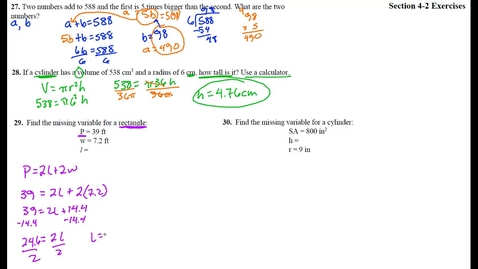 27. Two numbers add to 588 and the first is 5 times bigger than the second. What are the two numbers?
Section 4-2 Exercises
a, b
a + b = 588
5b + b = 588
6b = 588
6 6
a = 5b
b = 98
a = 490
98
6 588
-54
48
498
x 5
490
28. If a cylinder has a volume of 538 cm³ and a radius of 6 cm, how tall is it? Use a calculator.
V = πr²h
538 = π6²h
538 = π36h
36π 36π
h = 4.76cm
29. Find the missing variable for a rectangle:
P = 39 ft
w = 7.2 ft
l =
P = 2l + 2w
39 = 2l + 2(7.2)
39 = 2l + 14.4
-14.4 -14.4
24.6 = 2l
2 2
l =
30. Find the missing variable for a cylinder:
SA = 800 in²
h =
r = 9 in